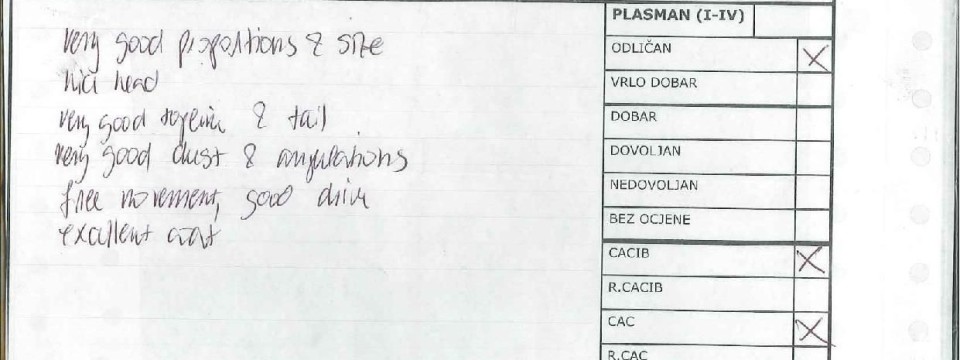 very good proportions & size
nice head
very good topline & tail
very good chest & angulations
free movement, good drive
excellent coat
PLASMAN (I-IV)
ODLIČAN X
VRLO DOBAR
DOBAR
DOVOLJAN
NEDOVOLJAN
BEZ OCJENE
CACIB X
R.CACIB
CAC X
R.CAC